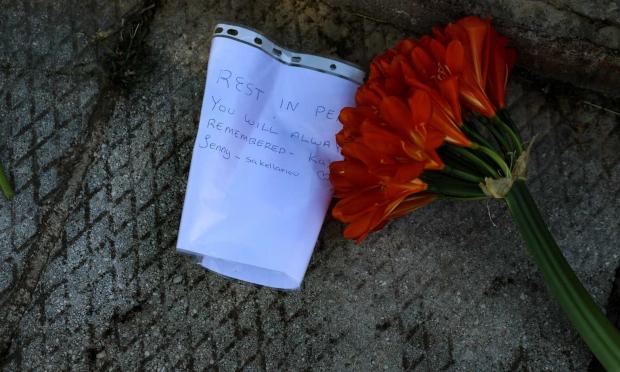 REST IN PE
YOU WILL ALWA
REMEMBERED -
Jenny - sakellariou